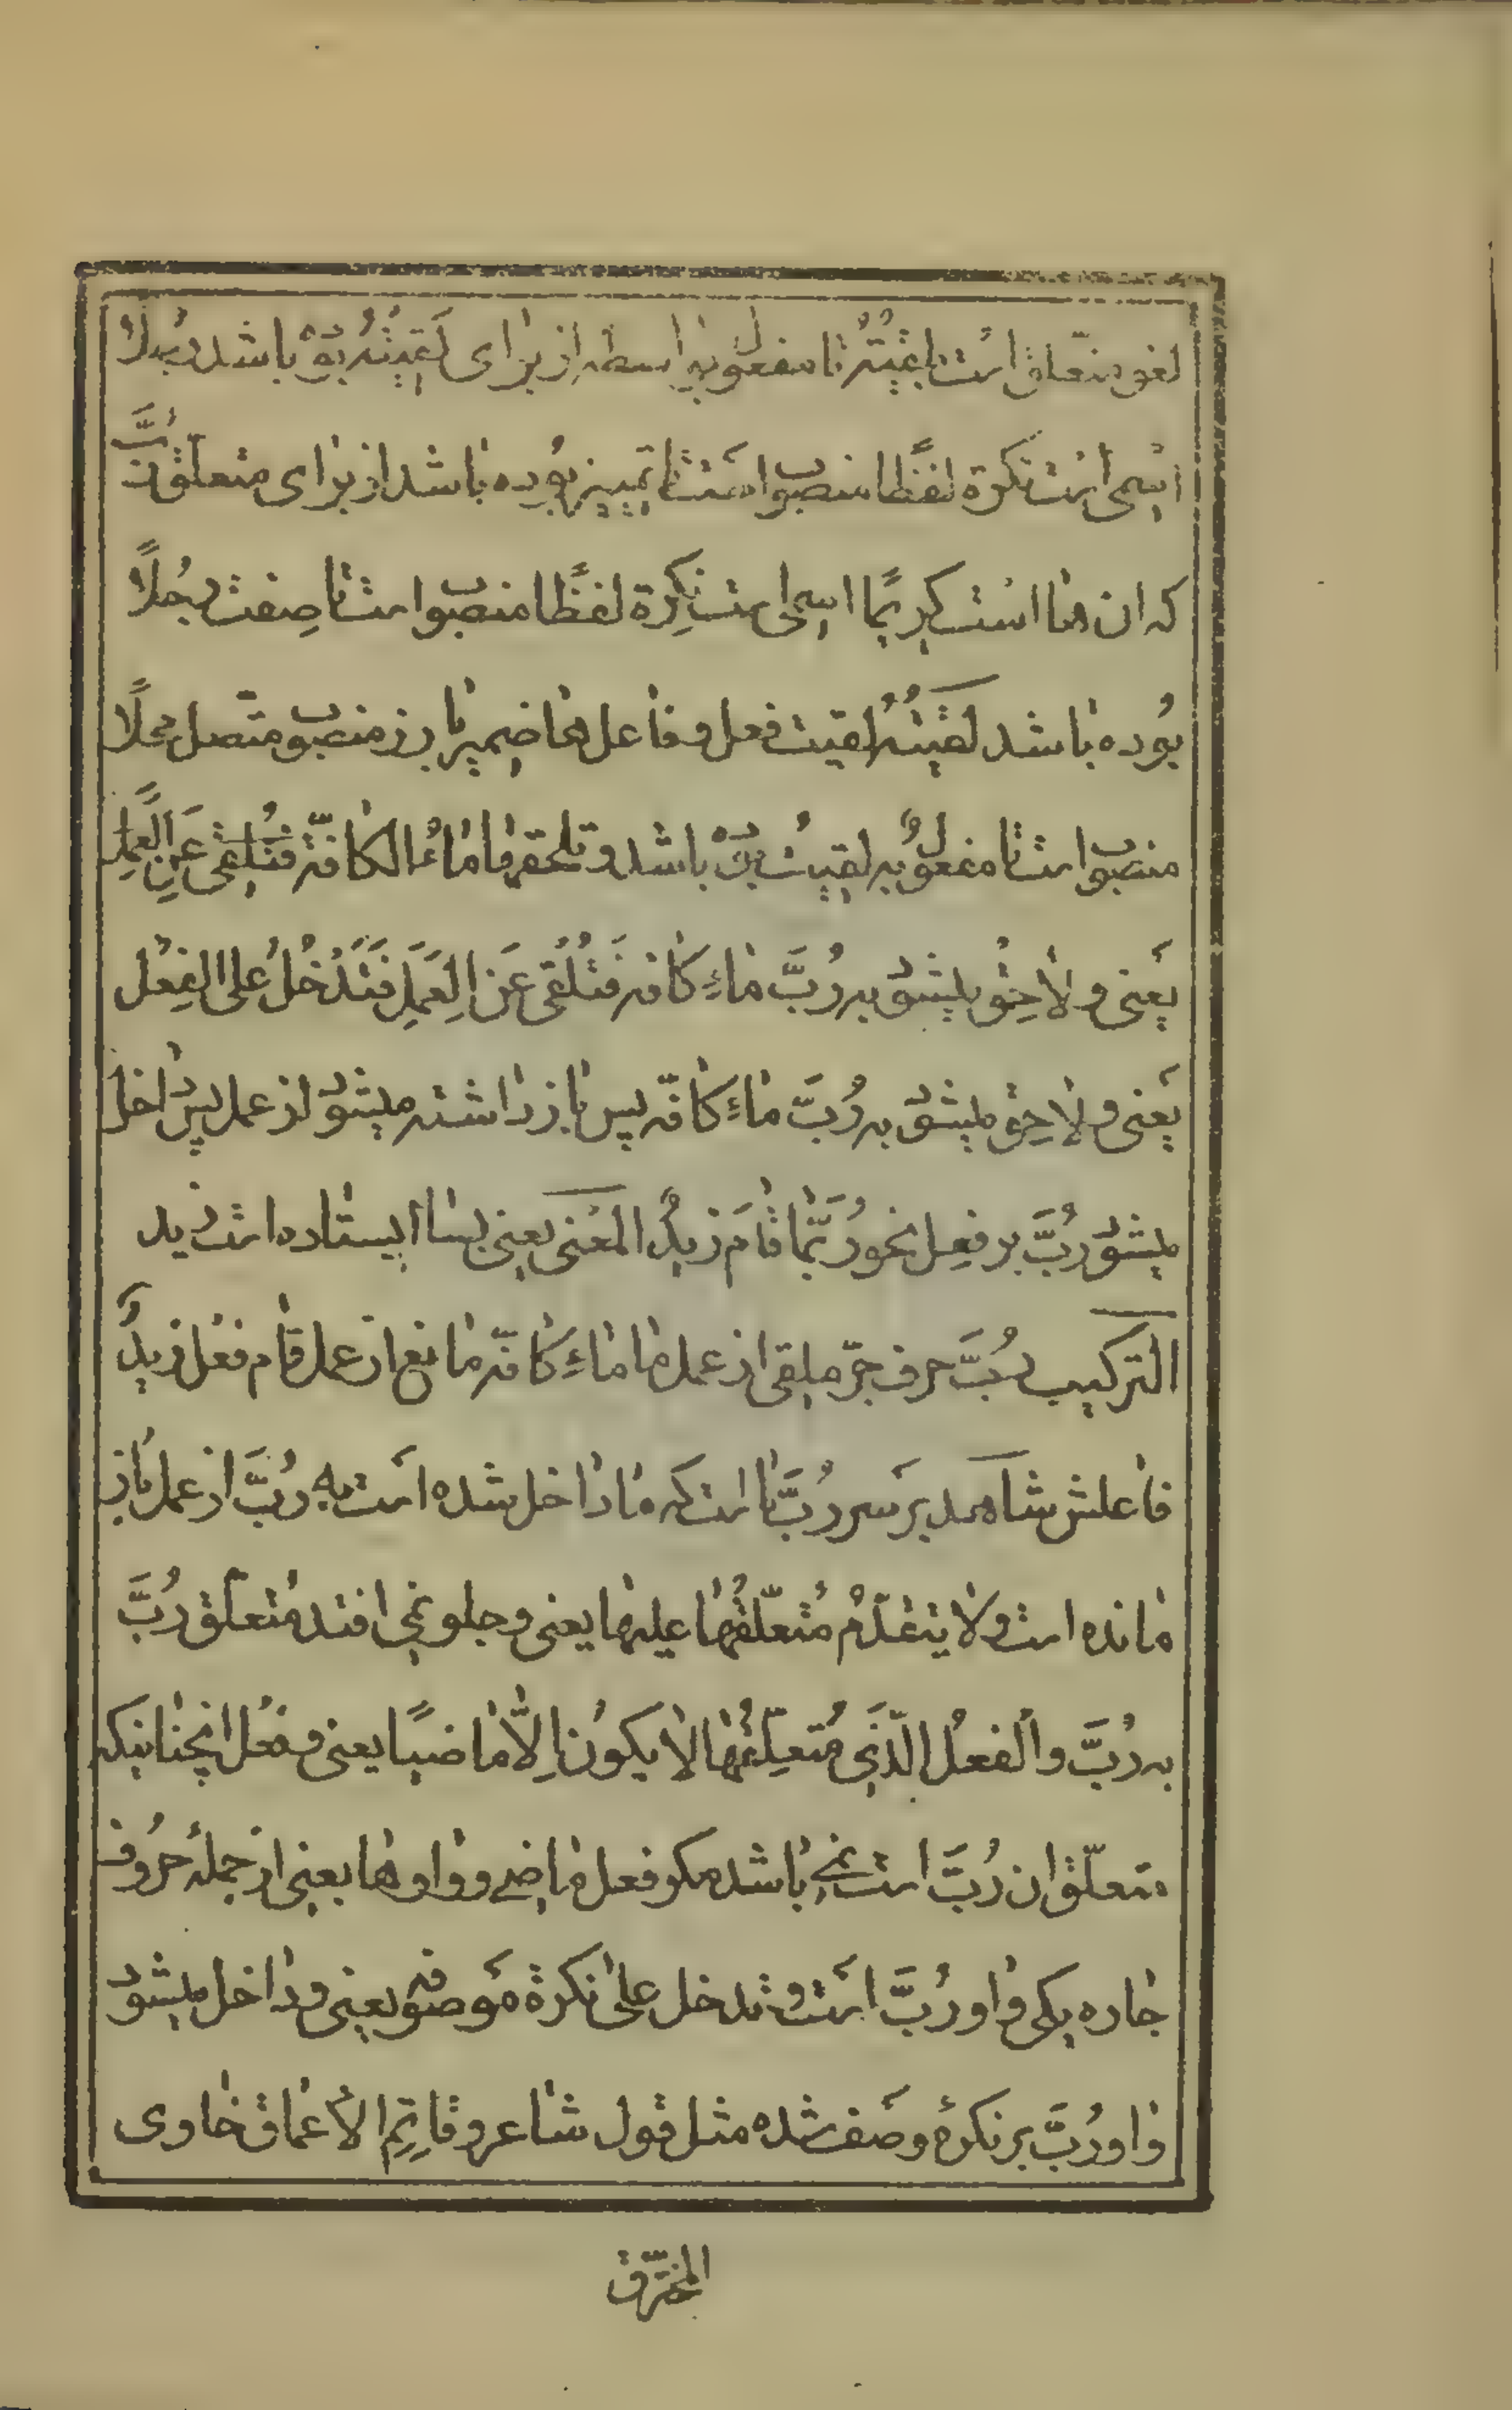 لغو متعلّق است بلقیته تا مفعول بواسطه از برای لقیته بوده باشد رجلاً
اسمی است نکرة لفظًا منصوب است تا تمییز بوده باشد از برای متعلق رُبَّ
که ان ها است کریمًا اسمی است نکِرة لفظًا منصوب است تا صِفت رجُلاً
بوُده باشد لَقیتُهُ لقیت فعل و فاعل ها ضمیر بارز منصوب متّصل محلًا
منصوب است تا مفعولٌ به لقیتُ بوده باشد و تلحقها ماءُ الکافّة فتُلغی عَنِ العَملِ
یَعنی و لاحِق میشود به رُبَّ ماءِ کافه فَتُلْقی عَن العَمَلِ فَتَدْخُلُ علی الفِعْل
یَعنی و لاحِق میشود به رُبَّ ماءِ کافّه پس بازداشته میشود از عمل پس داخل
میشود رُبَّ بر فعِل نحو رُبَّما قامَ زیدٌ المَعْنی یعنی بسا ایستاده است زید
الترکیب رُبَّ حرف جرّ ملقی از عمل ما ماءِ کافّه مانع از عمل قام فعل زیدٌ
فاعلش شاهد بر سر رُبَّ نا است که ما داخل شده است به رُبَّ از عمل باز
مانده است و لا یتقدّمُ مُتعلّقُها علیها یعنی و جلو نمی افتد متعلّق رُبَّ
به رُبَّ و الفعلُ الّذی مُتعلّقُها لا یکونُ اِلّا ماضیًا یعنی و فعل انچنانیکه
متعلّق ان رُبَّ است نمی باشد مکر فعل ماضی و واوها یعنی از جملهٔ حرُوف
جاره یکی واو رُبَّ است و تدخل علی نکرة موصوفة یعنی و داخل میشود
واو رُبَّ بر نکرهٔ وصَف شده مثل قول شاعر و قاتِمِ الأعماق خاوی
المخترّق